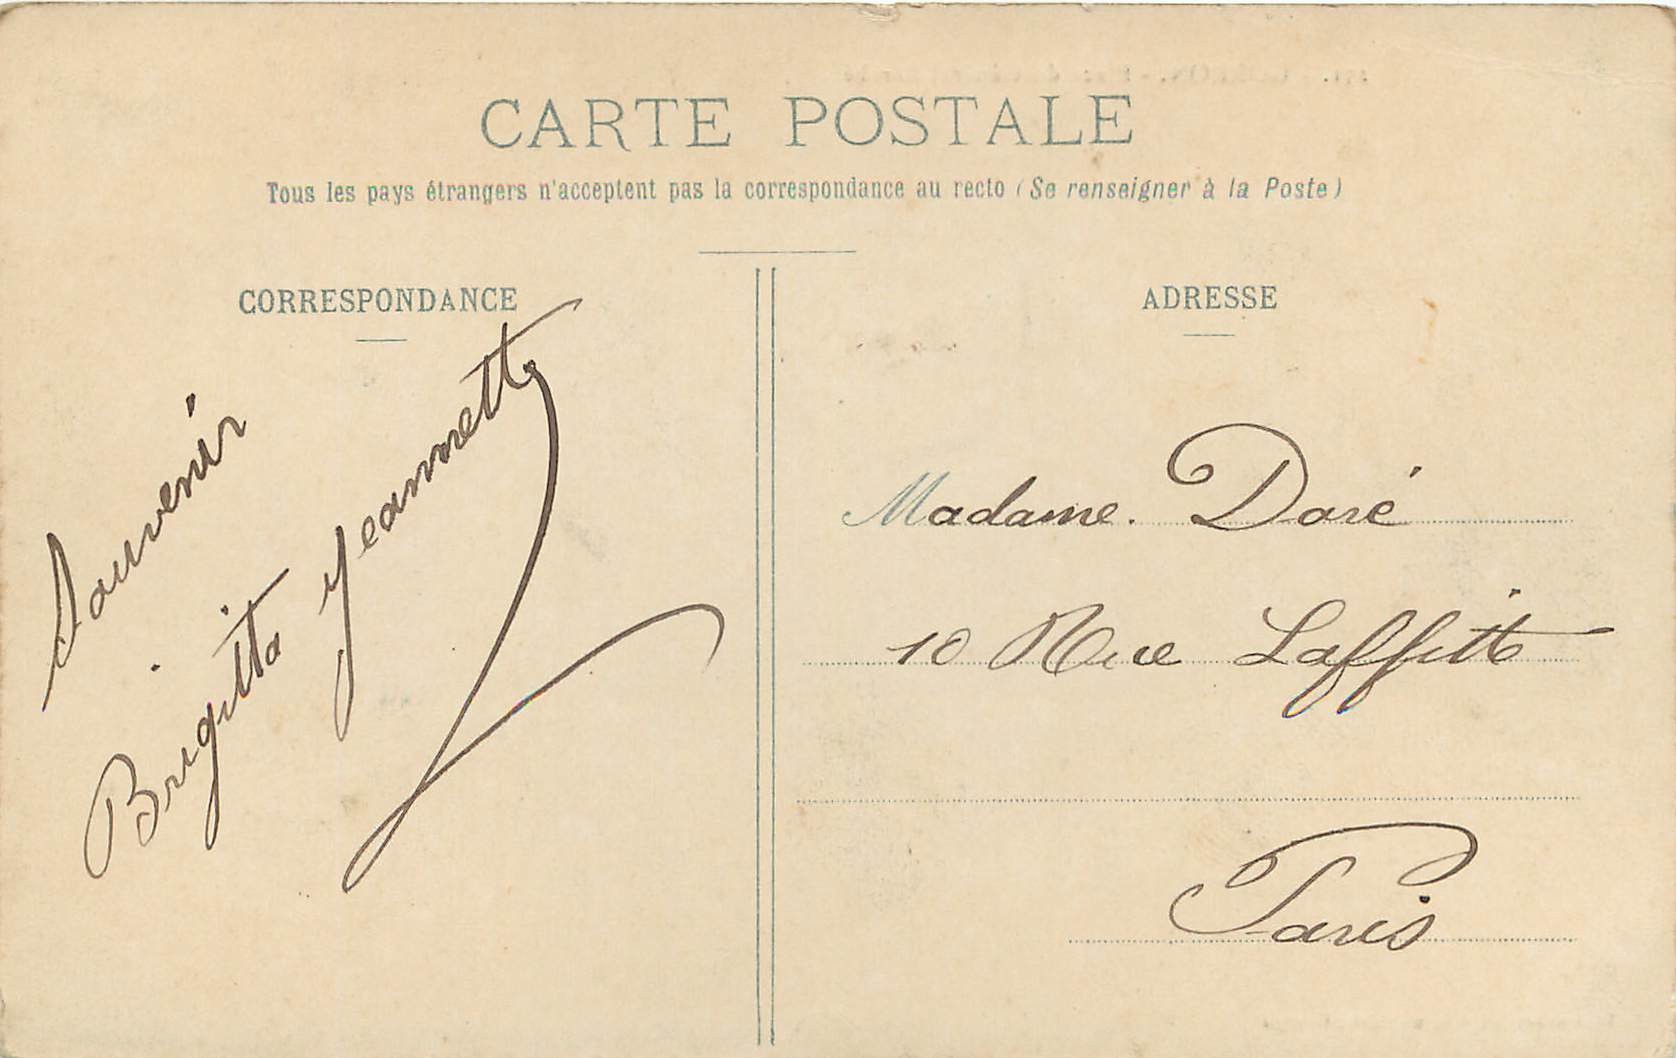 CARTE POSTALE
Tous les pays étrangers n'acceptent pas la correspondance au recto (Se renseigner à la Poste)
CORRESPONDANCE
Souvenir
Brigitta Jeannette
ADRESSE
Madame. Doré
10 Rue Laffitte
Paris